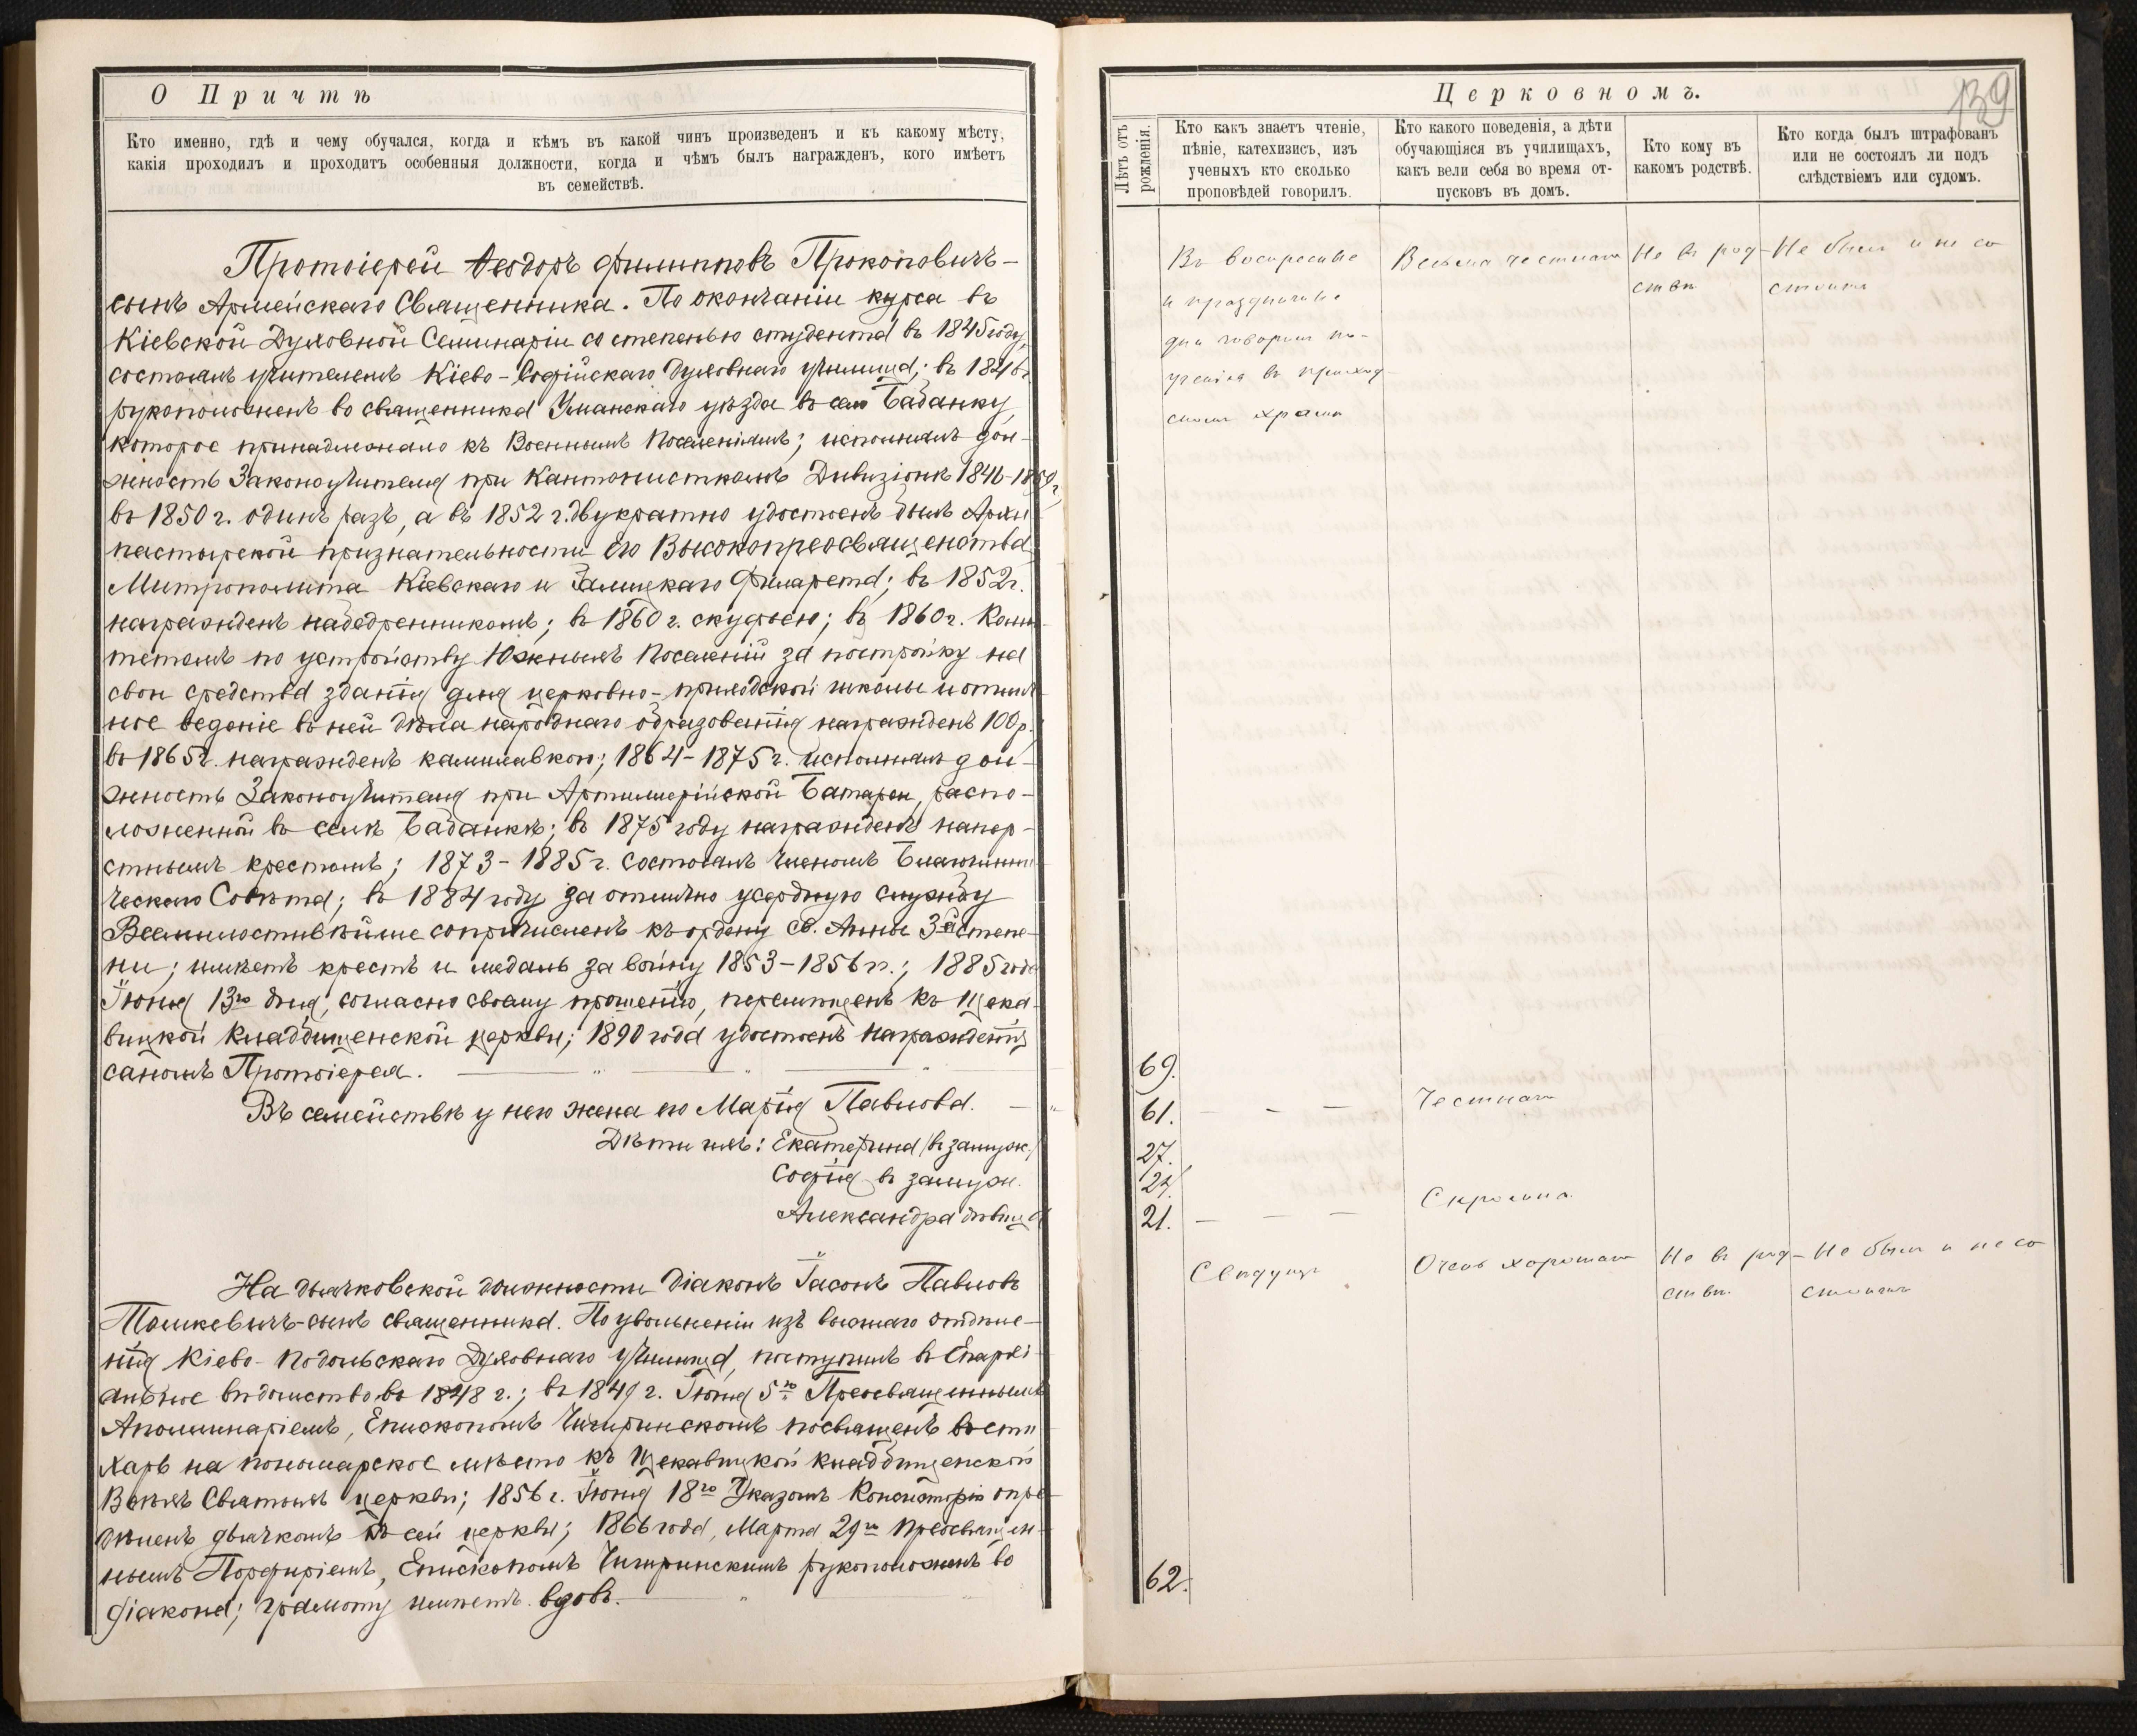 О Причтѣ
Кто именно, гдѣ и чему обучался, когда и кѣмъ въ какой чинъ произведенъ и къ какому мѣсту,
какія проходилъ и проходитъ особенныя должности, когда и чѣмъ былъ награжденъ, кого имѣетъ
въ семействѣ.
Протоіерей Ѳеодоръ Филипповъ Прокоповичъ –
сынъ Армейскаго Священника. По окончаніи курса въ
Кіевской Духовной Семинаріи со степенью студента въ 1845 году,
состоялъ учителемъ Кіево-Софійскаго Духовнаго училища; въ 1846 г.
рукоположенъ во священника Уманскаго уѣзда въ село Бабанку,
которое принадлежало къ Военнымъ Поселеніямъ; исполнялъ дол-
жность Законоучителя при Кантонистскомъ Дивизіонѣ 1846-1850 г.
въ 1850 г. одинъ разъ, а въ 1852 г. двукратно удостоенъ былъ Архи-
пастырской признательности Его Высокопреосвященства
Митрополита Кіевскаго и Галицкаго Филарета; въ 1852 г.
награжденъ набедренникомъ; въ 1860 г. скуфьею; въ 1860 г. Коми-
тетомъ по устройству Южныхъ Поселеній за постройку на
свои средства зданія для церковно-приходской школы и отлич-
ное веденіе въ ней дѣла народнаго образованія награжденъ 100 р.
въ 1865 г. награжденъ камилавкою; 1864-1875 г. исполнялъ дол-
жность Законоучителя при Артиллерійской Батареи, распо-
ложенной въ селѣ Бабанкѣ; въ 1875 году награжденъ напер-
стнымъ крестомъ; 1873-1885 г. состоялъ членомъ Благочинни-
ческаго Совѣта; въ 1884 году за отлично усердную службу
Всемилостивѣйше сопричисленъ къ ордену Св. Анны 3-й степе-
ни; имѣетъ крестъ и медаль за войну 1853-1856 гг.; 1885 года
Іюня 13го дня, согласно своему прошенію, перемѣщенъ къ Щека-
вицкой кладбищенской церкви; 1890 года удостоенъ награжденія
саномъ Протоіерея.
Въ семействѣ у него жена его Марія Павлова.
Дѣти ихъ: Екатерина /въ замуж./
Софія въ замуж.
Александра дѣвица
На дьячковской должности Діаконъ Іасонъ Павловъ
сынъ священника. По увольненіи изъ высшаго отдѣле-
нія Кіево-Подольскаго Духовнаго училища, поступилъ въ Епархі-
альное вѣдомство въ 1848 г.; въ 1849 г. Іюня 5го Преосвященнымъ
Аполлинаріемъ, Епископомъ Чигиринскимъ посвященъ въ сти-
харь на пономарское мѣсто къ Щекавицкой кладбищенской
Всѣхъ Святыхъ церкви; 1856 г. Іюня 18го Указомъ Консисторіи опре-
дѣленъ дьячкомъ къ сей церкви; 1866 года, Марта 29го Преосвящен-
нымъ Порфиріемъ, Епископомъ Чигиринскимъ рукоположенъ во
діакона; грамоту имѣетъ. вдовъ.
Церковномъ.
139
Лѣтъ отъ
рожденія.
Кто какъ знаетъ чтеніе,
пѣніе, катехизисъ, изъ
ученыхъ кто сколько
проповѣдей говорилъ.
Кто какого поведенія, а дѣти
обучающіяся въ училищахъ,
какъ вели себя во время от-
пусковъ въ домъ.
Кто кому въ
какомъ родствѣ.
Кто когда былъ штрафованъ
или не состоялъ ли подъ
слѣдствіемъ или судомъ.
Въ воскресные
и праздничные
дни говорилъ по-
ученія въ приход-
скомъ храмѣ
Весьма честнаго
Не въ род-
ствѣ
Не былъ и не со
стоялъ
69.
61. – – – Честнаго
27.
24.
21. – – – Скромна
Свѣдущъ
Очень хорошаго
Не въ род-
ствѣ.
Не былъ и не со
стоялъ
62.